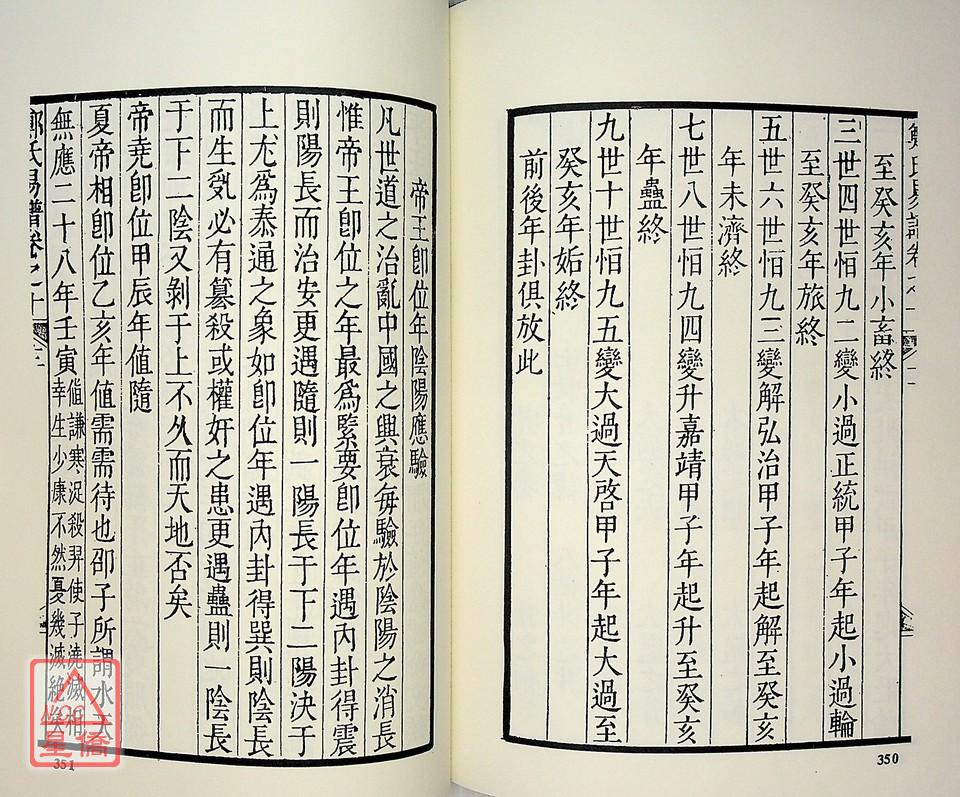 鄭氏易譜卷之十
至癸亥年小畜終
三世四世恒九二變小過正統甲子年起小過輪
至癸亥年旅終
五世六世恒九三變解弘治甲子年起解至癸亥
年未濟終
七世八世恒九四變升嘉靖甲子年起升至癸亥
年蠱終
九世十世恒九五變大過天啓甲子年起大過至
癸亥年姤終
前後年卦俱放此
350
帝王卽位年陰陽應驗
凡世道之治亂中國之興衰每驗於陰陽之消長
惟帝王卽位之年最爲緊要卽位年遇內卦得震
則陽長而治安更遇隨則一陽長于下二陽決于
上尤爲泰通之象如卽位年遇內卦得巽則陰長
而生亂必有簒殺或權奸之患更遇蠱則一陰長
于下二陰又剝于上不久而天地否矣
帝堯卽位甲辰年値隨
夏帝相卽位乙亥年値需需待也卽子所謂水天
無應二十八年壬寅値謙寒浞殺羿使子澆滅相
幸生少康不然憂幾滅絶
鄭氏易譜卷之十
三
351
星僑